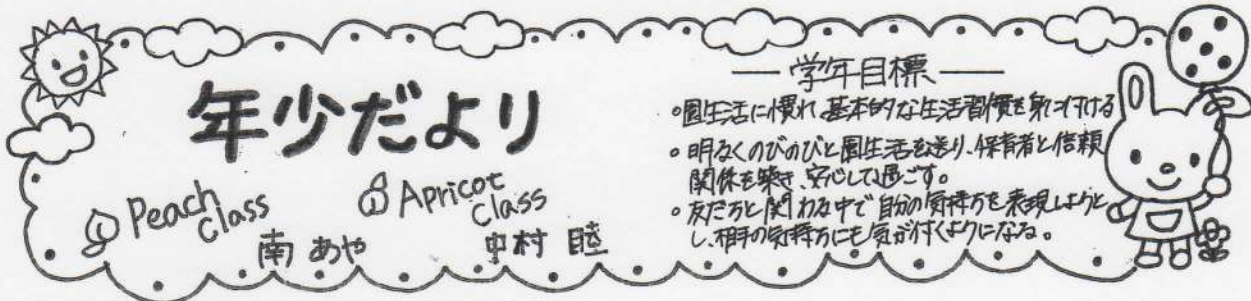 年少だより
Peach
Class
南 あや
Apricot
Class
中村 睦
学年目標
。園生活に慣れ、基本的な生活習慣を身に付ける
。明るくのびのびと園生活を送り、保育者と信頼
関係を築き、安心して過ごす。
。友だちと関わる中で自分の気持ちを表現しようと
し、相手の気持ちにも気が付くようになる。